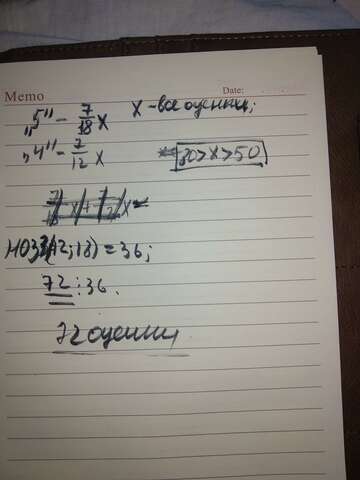 Memo
Date:
„5" - 7/18 x x - все оценки;
„4" - 7/12 x 80 > x > 50
НОЗ (12; 18) = 36;
72 : 36.
72 оценки